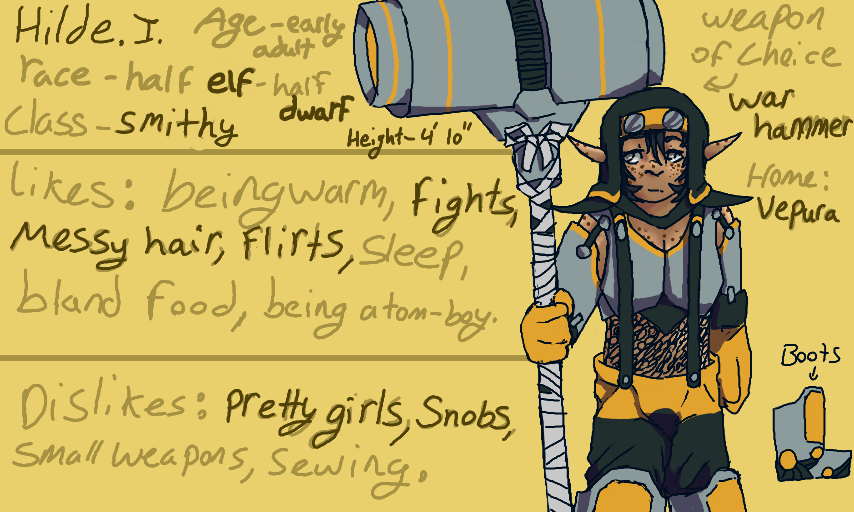 Hilde. I.
Age - early adult
race - half elf - half dwarf
Class - smithy
Height - 4' 10"
weapon of Choice
war hammer
Home: Vepura
likes: being warm, fights,
Messy hair, Flirts, Sleep,
bland food, being a tom-boy.
Dislikes: Pretty girls, Snobs,
Small weapons, Sewing.
Boots